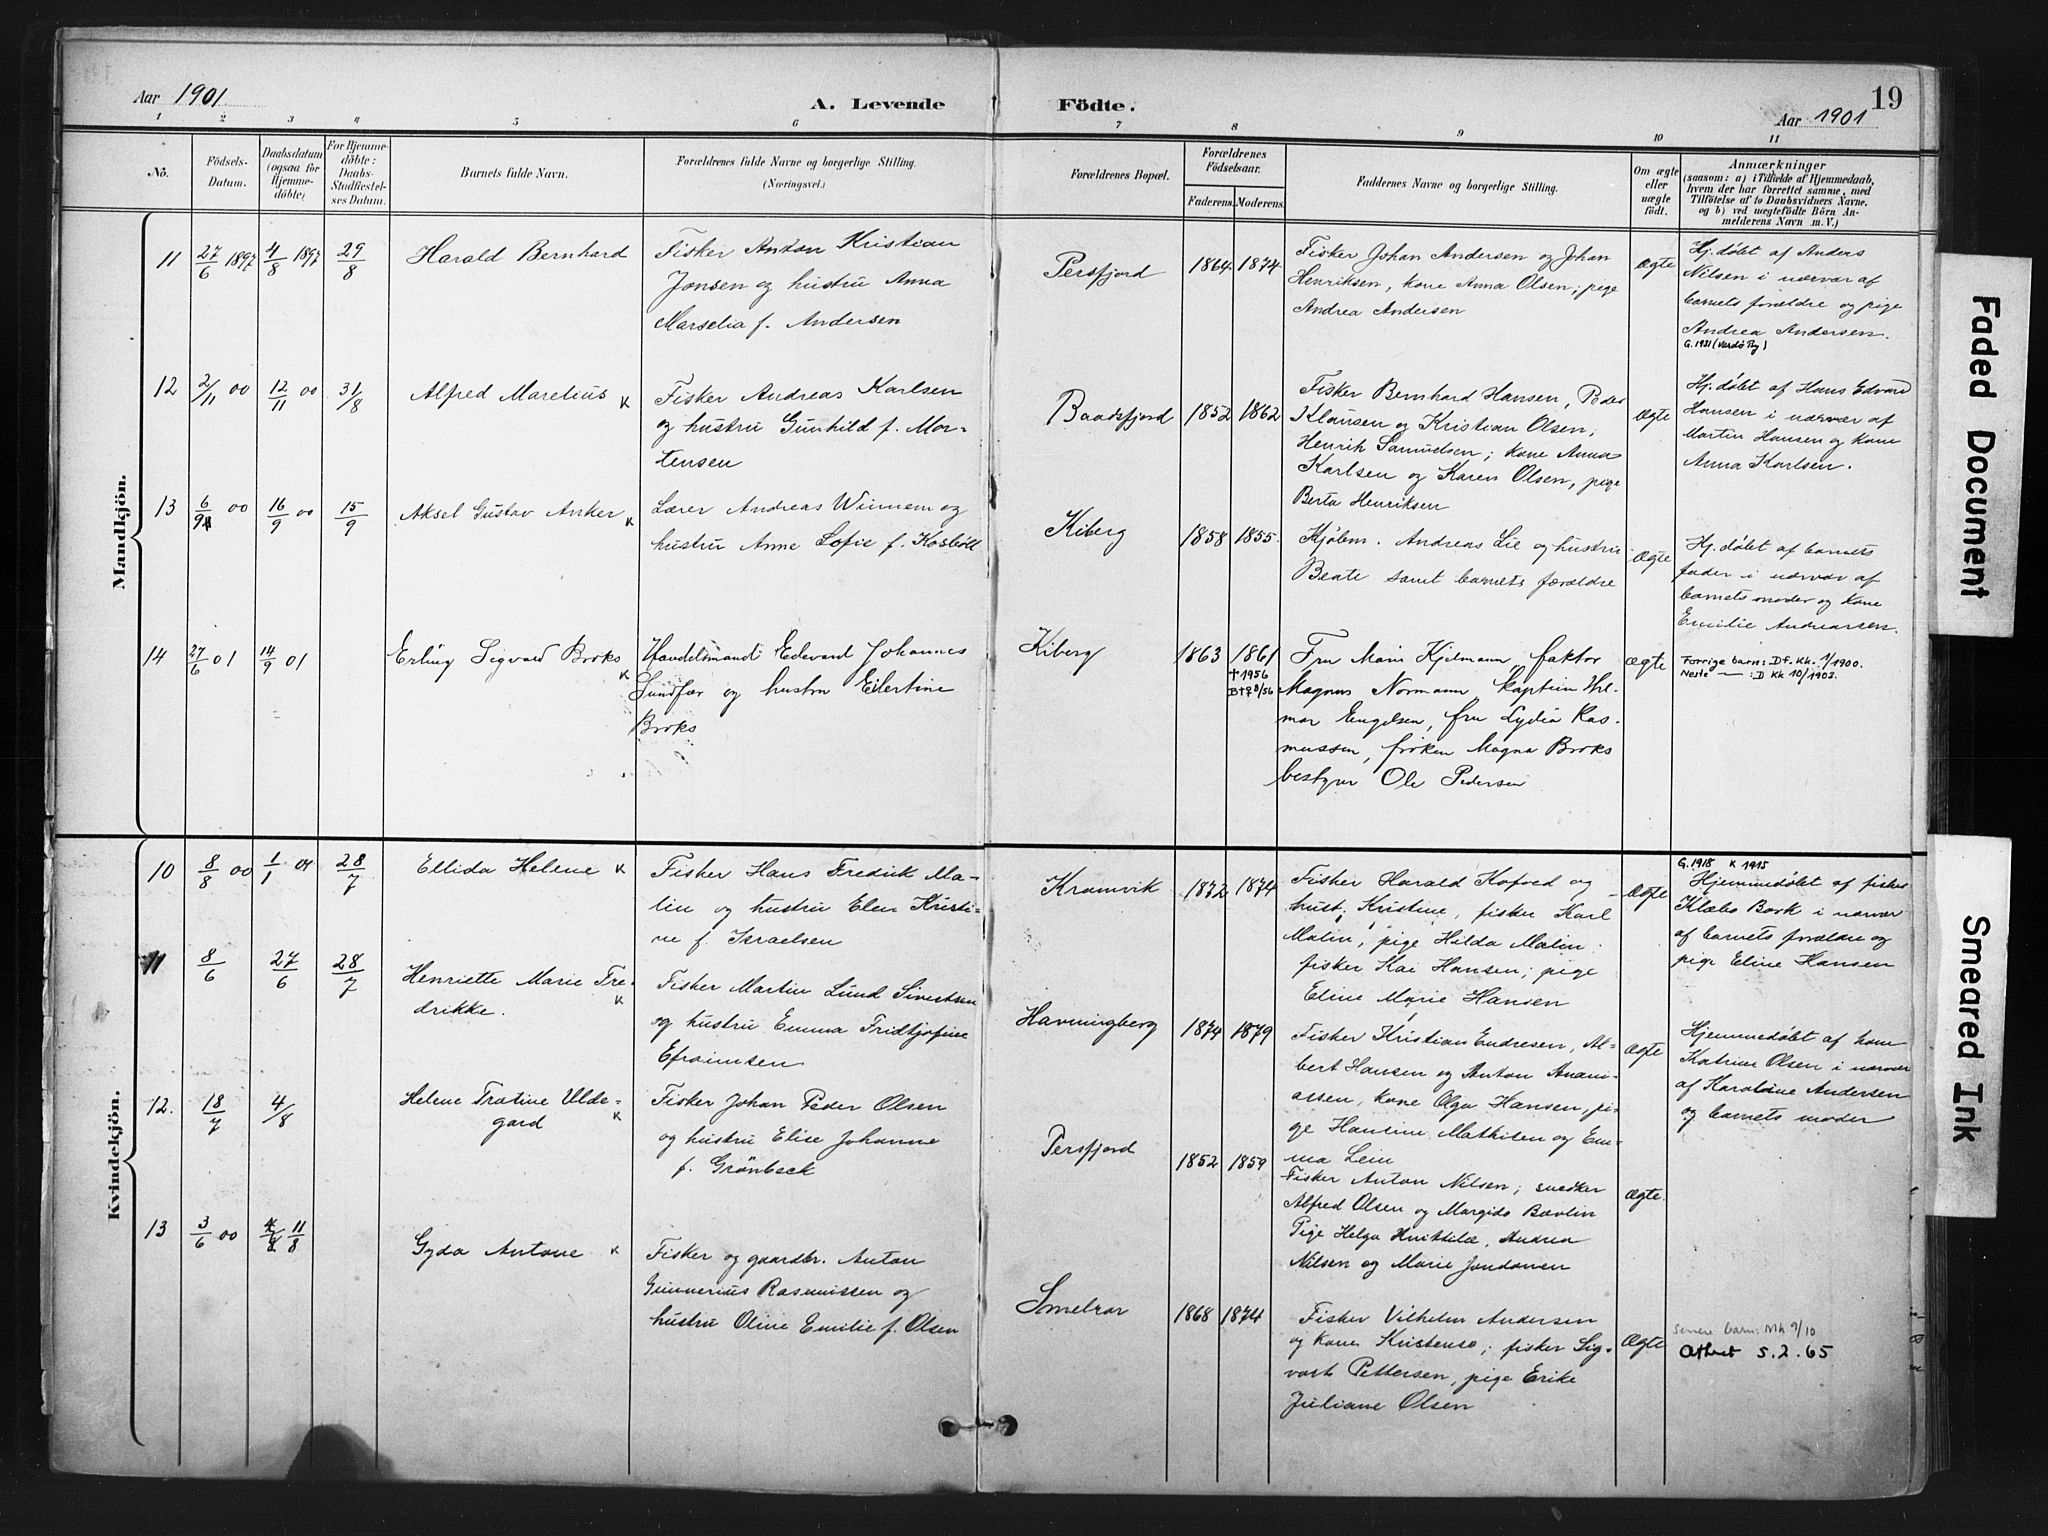 Aar 1901.
A. Levende Födte.
19
Aar 1901
1 2 3 4 5 6 7 8 9 10 11
No.
Födsels-
Datum.
Daabsdatum
(ogsaa for
Hjemme-
döbte)
For Hjemme-
döbte:
Daabs-
Stadfæstel-
ses Datum.
Barnets fulde Navn.
Forældrenes fulde Navne og borgerlige Stilling.
(Næringsvei.)
Forældrenes Bopæl.
Forældrenes
Födselsaar.
Faderens. Moderens.
Faddernes Navne og borgerlige Stilling.
Om ægte
eller
uægte
födt.
Anmærkninger
(saasom: a) i Tilfælde af Hjemmedaab,
hvem der har forrettet samme, med
Tilföielse af to Daabsvidners Navne.
og b) ved uægtefödte Börn An-
melderens Navn m. V.)
Mandkjön.
11
27/6 1897
4/8 1897
29/8
Harald Bernhard
Fisker Anton Kristian
Jonsen og hustru Anna
Marselia f. Andersen
Persfjord
1864
1874
Fisker Johan Andersen og Johan
Henriksen, kone Anna Olsen; pige
Andrea Andersen
Ægte
Hj.døbt af Anders
Nilsen i nærvær af
barnets forældre og pige
Andrea Andersen.
G. 1931 (Vardö By)
12
2/11 00
12/11 00
31/8
Alfred Marelius
Fisker Andreas Karlsen
og hustru Gunhild f. Mor-
tensen
Baadsfjord
1852
1862
Fisker Bernhard Hansen, Peder
Klausen og Kristian Olsen;
Henrik Samuelsen; kone Anna
Karlsen og Karen Olsen, pige
Berta Henriksen
Ægte
Hj.døbt af Hans Edvard
Hansen i nærvær af
Martin Hansen og kone
Anna Karlsen.
13
6/9 00
16/9 00
15/9
Aksel Gustav Anker
Lærer Andreas Winnem og
hustru Anne Sofie f. Kosböll
Kiberg
1858
1855
Kjøbm. Andreas Lie og hustru
Beate samt barnets forældre
Ægte
Hj.døbt af barnets
fader i nærvær af
barnets moder og kone
Emilie Andreassen.
14
27/6 01
14/9 01
Erling Sigvard Broks
Handelsmand Edevard Johannes
Sundfær og hustru Eilertine
Broks
Kiberg
1863
1861
† 1956
Fru Marie Kjelmann, faktor
Magnus Normann, Kaptein Hil-
mar Engelsen, fru Lydia Ras-
mussen, frøken Magna Broks
bestyrer Ole Pedersen
Ægte
Forrige barn: Df. Kk. 1/1900.
Neste — : D Kk 10/1903.
Kvindekjön.
10
8/8 00
1/1 01
28/7
Ellida Helene
Fisker Hans Fredrik Ma-
lin og hustru Elen Kristi-
ne f. Israelsen
Kramvik
1872
1874
Fisker Harald Kofoed og
hust. Kristine, fisker Karl
Malin, pige Hilda Malin;
fisker Kai Hansen; pige
Eline Marie Hansen
Ægte
G. 1918 K 1915
Hjemmedøbt af fisker
Klæbo Bork i nærvær
af barnets forældre og
pige Eline Hansen
11
8/6
27/6
28/7
Henriette Marie Fre-
drikke.
Fisker Martin Lund Sivertsen
og hustru Emma Fridtjofine
Efraimsen
Havningberg
1874
1879
Fisker Kristian Endresen, Al-
bert Hansen og Anton Anani-
assen, kone Olga Hansen, pi-
ge Hansine Mathisen og Em-
ma Lein
Ægte
Hjemmedøbt af kone
Katrine Olsen i nærvær
af Karoline Andersen
og barnets moder
12.
18/7
4/8
Helene Tratine Ulde-
gard
Fisker Johan Peder Olsen
og hustru Elise Johanne
f. Grönbeck
Persfjord
1852
1859
Fisker Anton Nilsen; snedker
Alfred Olsen og Margido Bævlin
Pige Helga Hvittilæ, Andrea
Nilsen og Marie Jondamen
Ægte.
13
3/6 00
11/8
Gyda Antone
Fisker og gaardbr. Anton
Gunnerius Rasmussen og
hustru Oline Emilie f. Olsen
Smelrar
1868
1874
Fisker Vilhelm Andersen
og kone Kristense; fisker Sig-
vart Pettersen, pige Erike
Juliane Olsen
Ægte
Senere barn: Mk 9/10
Attest 5.2.65
Faded Document
Smeared Ink